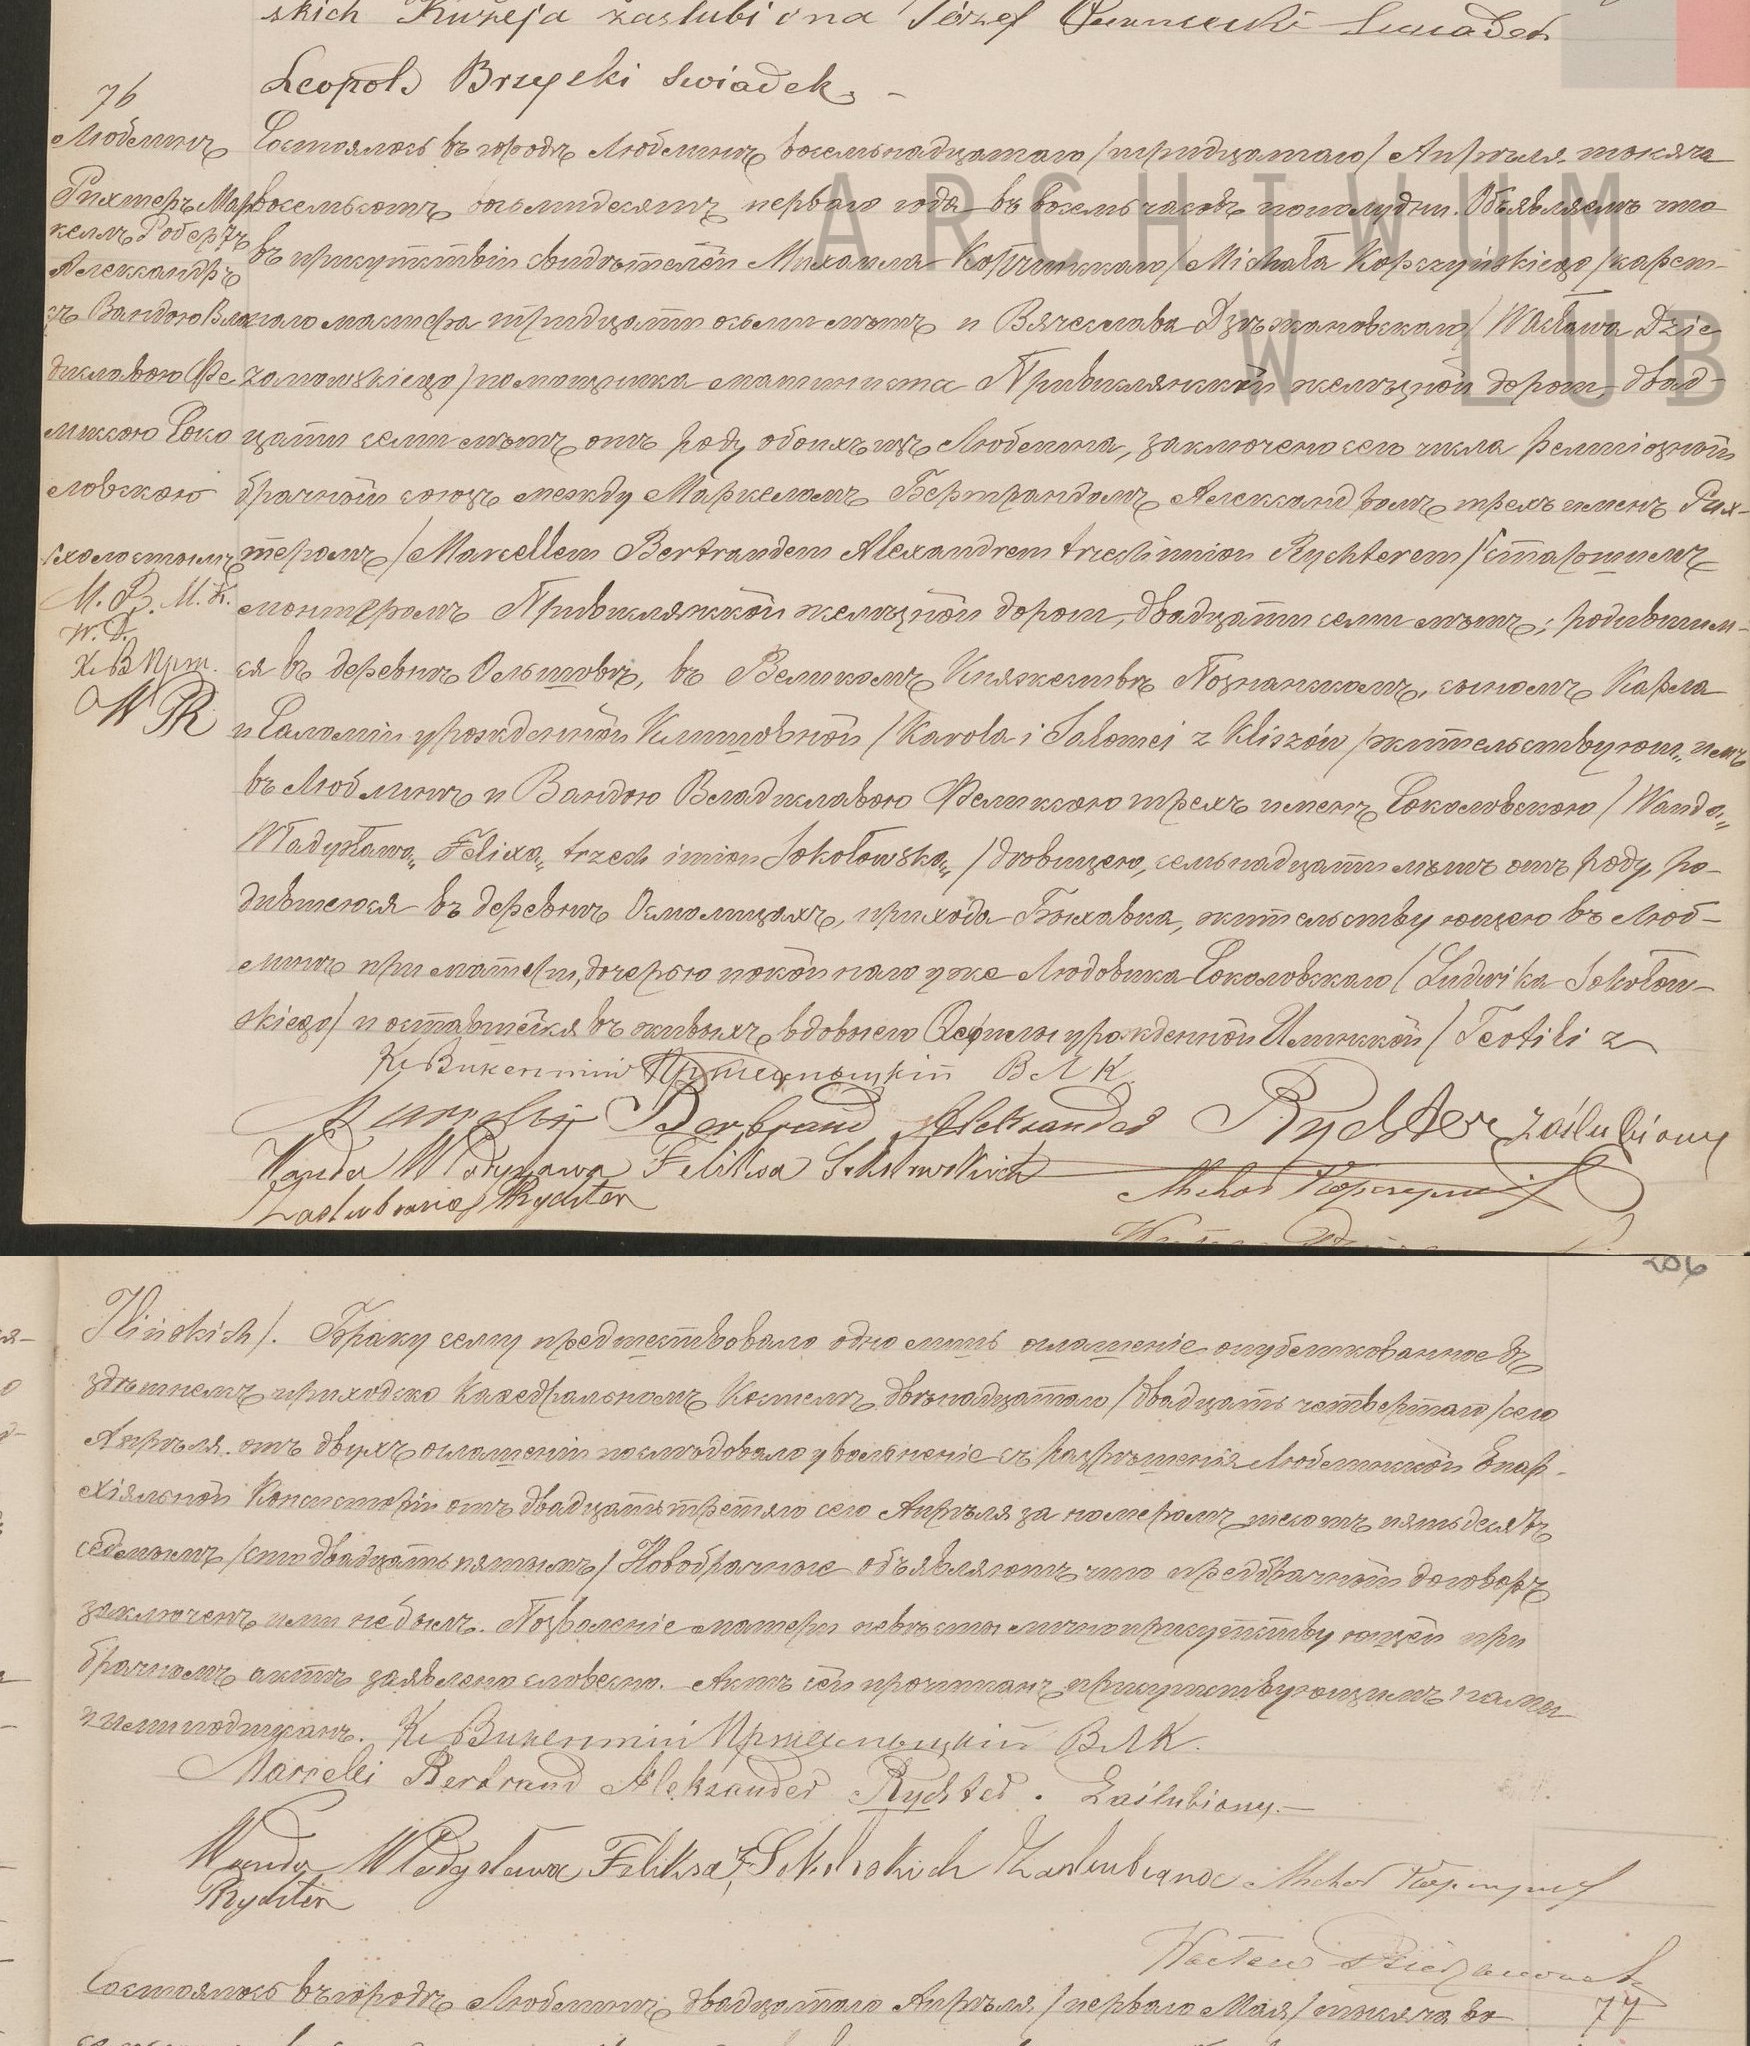 skich Kużeja zaslubiona Józef
Leopold Brzycki Swiadek
76
Люблинъ
Рихтеръ Мар
келлъ Робертъ
Александръ
съ Вандою Вла
диславою Фе
ликсою Соко
ловскою
/холостымъ
М. Р. М. К.
W. D.
К. В Прж.
W R
Состоялось въ городѣ Люблинѣ восемьнадцатаго /тридцатаго/ Апрѣля тысяча
восемьсотъ восьмидесятъ перваго года въ восемь часовъ пополудни. Объявляемъ что
въ присутствіи свидѣтелей Михаила Корчинскаго /Michała Kopczyńskiego/ карет-
наго мастера тридцати осьми лѣтъ и Вячеслава Дзѣжановскаго /Wacława Dzie
żanowskiego/ помощника машиниста Привислянской желѣзной дороги, двад-
цати семи лѣтъ отъ роду обоихъ изъ Люблина, заключено сего числа религіозный
брачный союзъ между Маркелломъ Бертрандомъ Александромъ трехъ именъ Рих-
теромъ /Marcellem Bertrandem Alexandrem trzech imion Rychterem/ старшимъ
монтеромъ Привислянской желѣзной дороги, двадцати семи лѣтъ; родившим-
ся въ деревнѣ Ольшовѣ, въ Великомъ Княжествѣ Познанскомъ, сыномъ Карла
и Саломіи урожденной Клишовной /Karola i Salomei z Kliszów/ жительствующимъ
въ Люблинѣ и Вандою Владиславою Феликсою трехъ именъ Соколовскою /Wandą
Władysławą Felixą trzech imion Sokołowską/ дѣвицею, семьнадцати лѣтъ отъ роду, ро-
дившеюся въ деревнѣ Осмолицахъ, прихода Быхавка, жительствующею въ Люб-
линѣ при матери, дочерью покойнаго уже Людовика Соколовскаго /Ludwika Sokołow-
skiego/ и оставшейся въ живыхъ вдовы его Ѳеофилы урожденной Илинской /Teofili z
К. Викентій Пржесмыцкій В Л К.
Marceli Bertrand Aleksander Rychter zaślubiony
Wanda Władysława Feliksa Sokołowskich
Zaślubiona Rychter
Michał Kopczyński
ARCHIWUM
W LUB
206
Ilińskich/. Браку сему предшествовало одно лишь оглашеніе опубликованное въ
здѣшнемъ приходско Каѳедральномъ Костелѣ двѣнадцатаго /двадцать четвертаго/ сего
Апрѣля. отъ двухъ оглашеній послѣдовало увольненіе съ разрѣшенія Люблинской Епар-
хіяльной Консисторіи отъ двадцать третяго сего Апрѣля за номеромъ шесотъ пятьдесятъ
седьмымъ /сто двадцать пятымъ/ Новобрачные объявляютъ что предбрачный договоръ
заключенъ ими не былъ. Позволеніе матери невѣсты лично присутствующей при
брачномъ актѣ заявлено словесно. Актъ сей прочитанъ присутствующимъ нами
и ими подписанъ. К. Викентій Пржесмыцкій В Л К.
Marceli Bertrand Aleksander Rychter. Zaślubiony.
Wanda Władysława Feliksa z Sokołowskich Zaślubiona Michał Kopczyński
Rychter
Wacław Dzierżanowski
Состоялось въ городѣ Люблинѣ двадцатаго Апрѣля /перваго Мая/ тысяча во 77